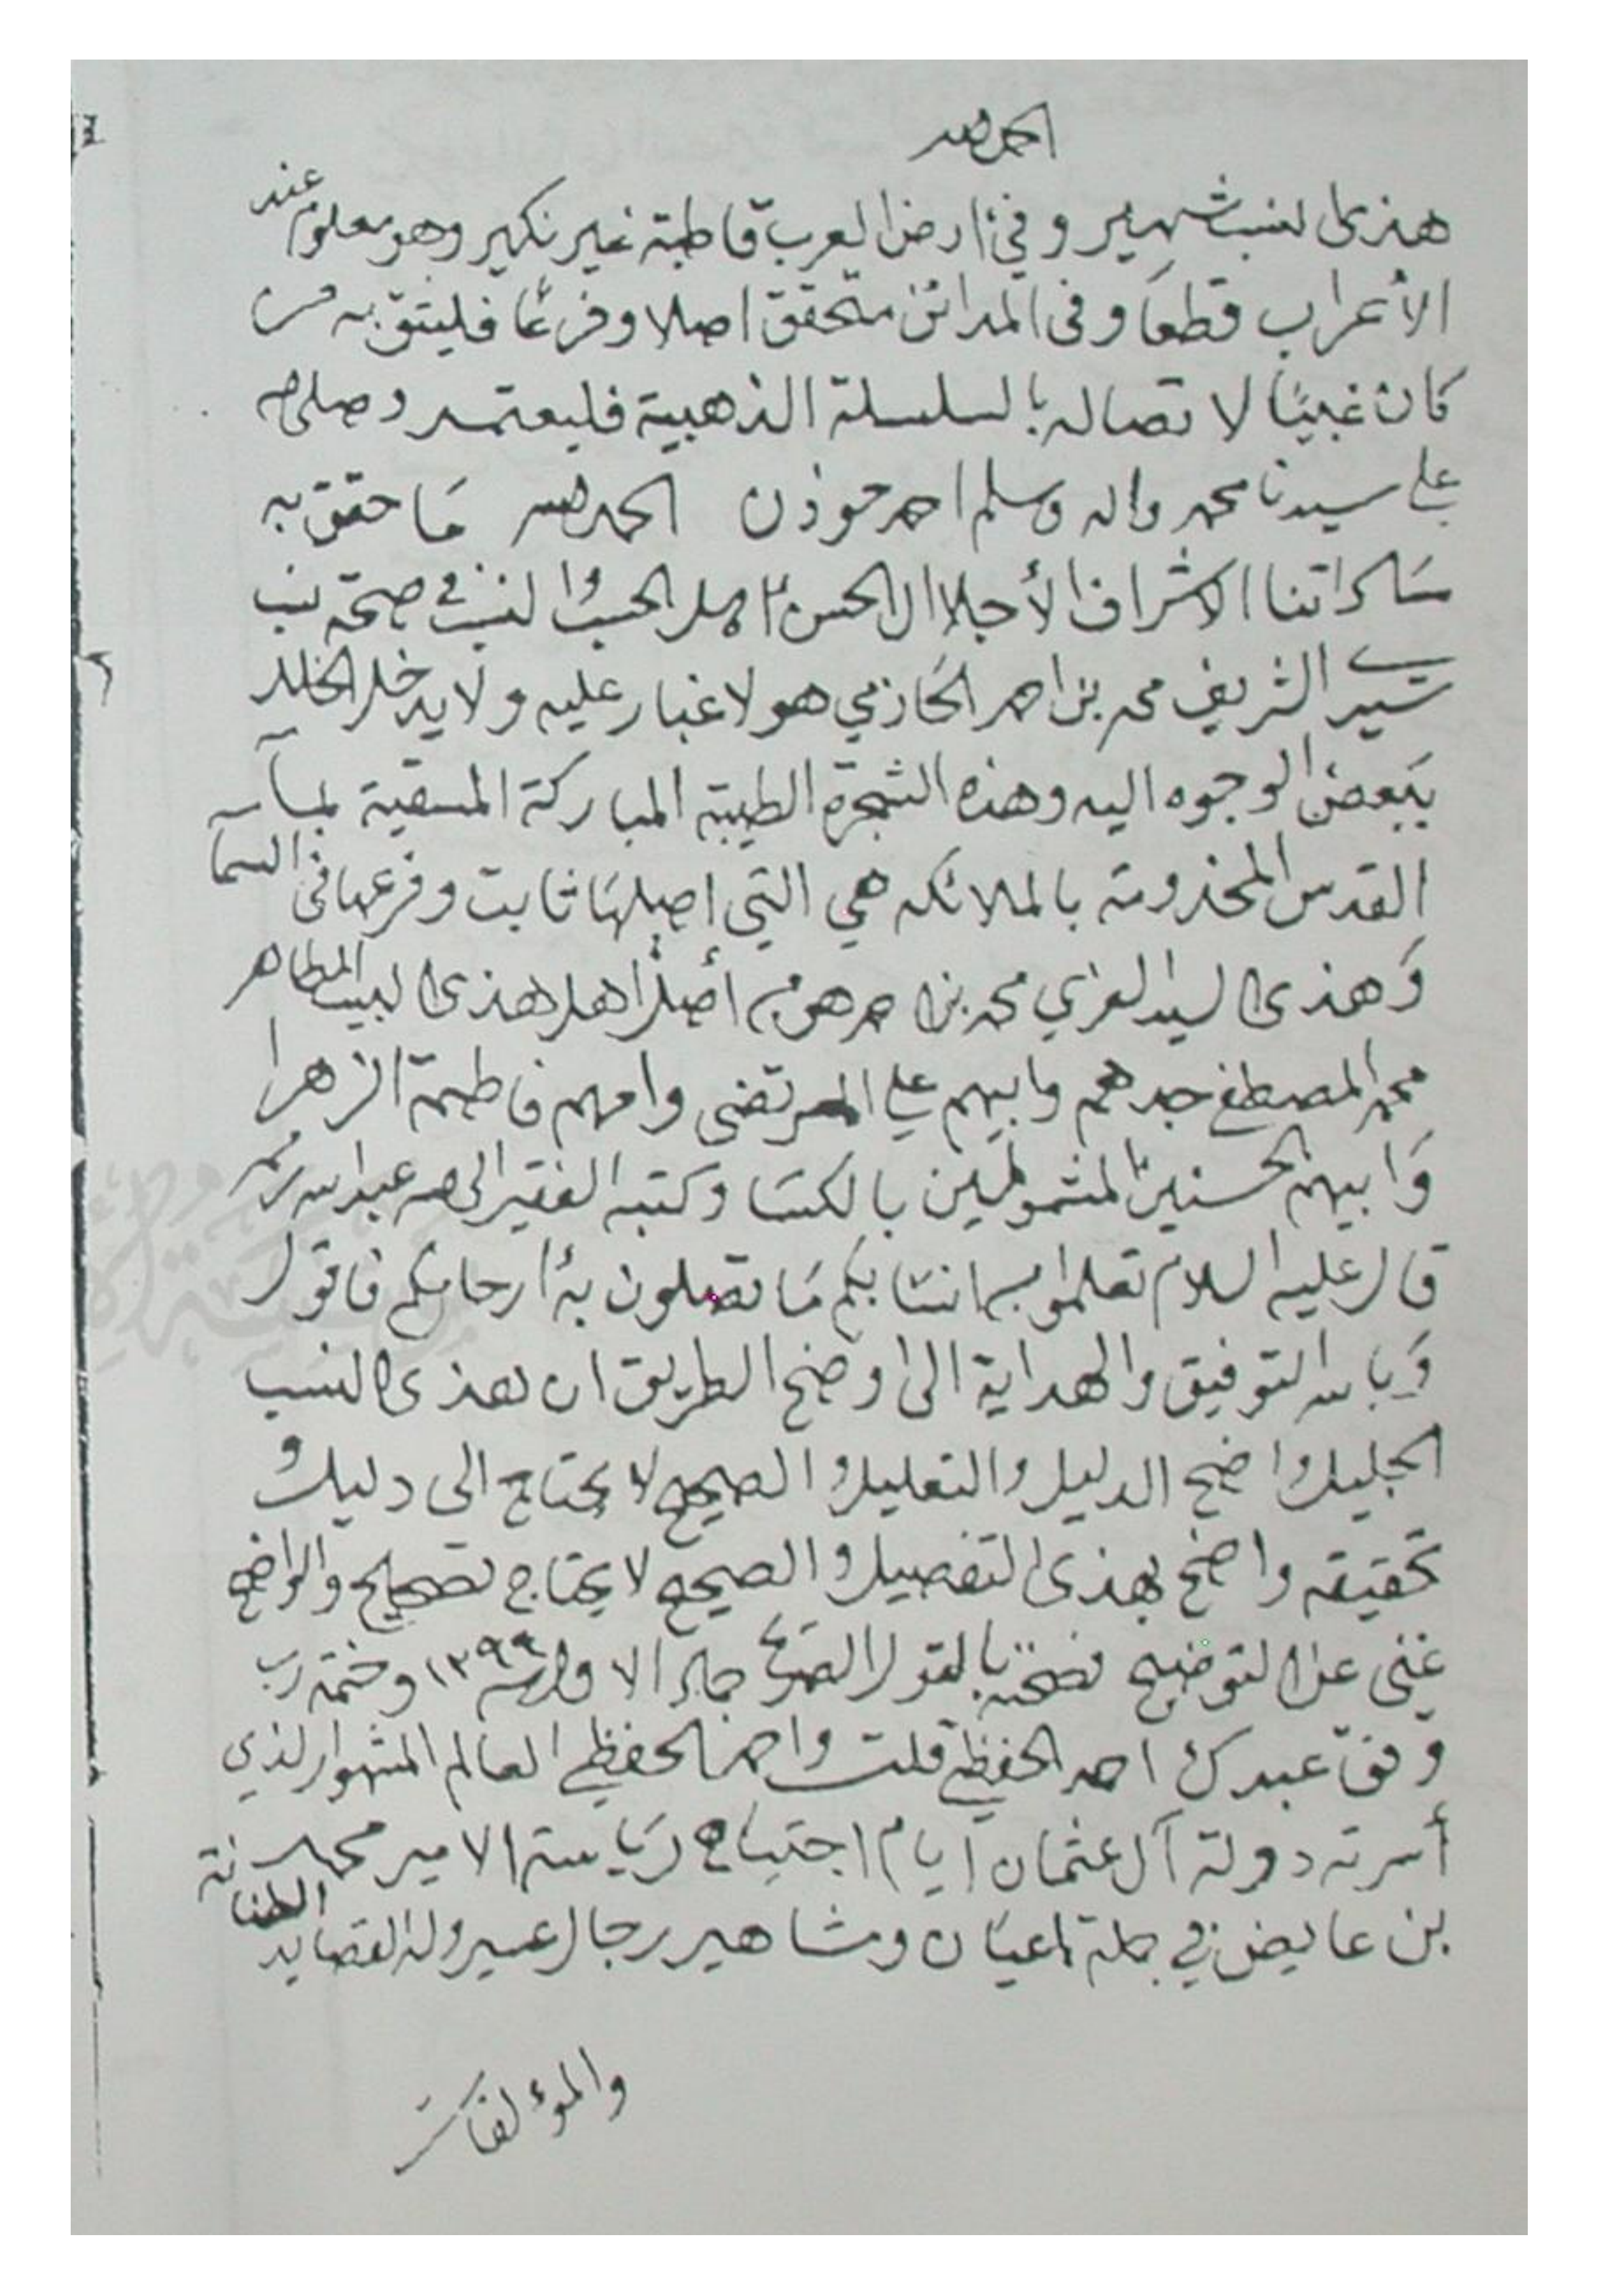 الحمد لله
هذى النسب شهير وفي ارض العرب قاطبة غير نكير وهو معلوم عند
الأعراب قطعا وفى المدائن متحقق اصلا وفرعًا فليثق به من
كان غبيًا لاتصاله بالسلسلة الذهبية فليعتمد وصلى الله
على سيدنا محمد واله وسلم احمد الحمد لله ما حقق به
ساداتنا الاشراف الأجلا ال الحسن اهل الحسب والنسب في صحة نسب
سيد الشريف محمد بن احمد الحازمي هو لا غبار عليه ولا يدخل الخلل
ببعض الوجوه اليه وهذه الشجرة الطيبة المباركة المسقية بماء
القدس بالملائكه هي التي اصلها ثابت وفرعها فى السما
وهذى السيد العزي محمد بن احمد هو من أصل اهل هذى البيت المطاهر
محمد المصطفى جدهم وابيهم علي المرتضى وامهم فاطمة الزهرا
وابيهم الحسنين المشمولين بالكسا وكتبه الفقير الى الله عبد الله
قال عليه السلام تعلموا من انسابكم ما تصلون به ارحامكم فاقول
وبالله التوفيق والهداية الى اوضح الطريق ان هذى النسب
الجليل واضح الدليل والتعليل والصحيح لا يحتاج الى دليل و
تحقيقه واضح بهذى التفصيل والصحيح لا يحتاج تصحيح والواضح
غني عن التوضيح بالقول الصريح جماد الاول سنة ١٢٩٩ وختمه رب
وفق عبدك احمد الحفظي قلت واحمد الحفظي العالم المشهور الذي
أسرته دولة آل عثمان ايام اجتياح رياسة الامير محمد
بن عايض في جملة اعيان ومشاهير رجال عسير وله القصايد الطنانة
والمؤلفات